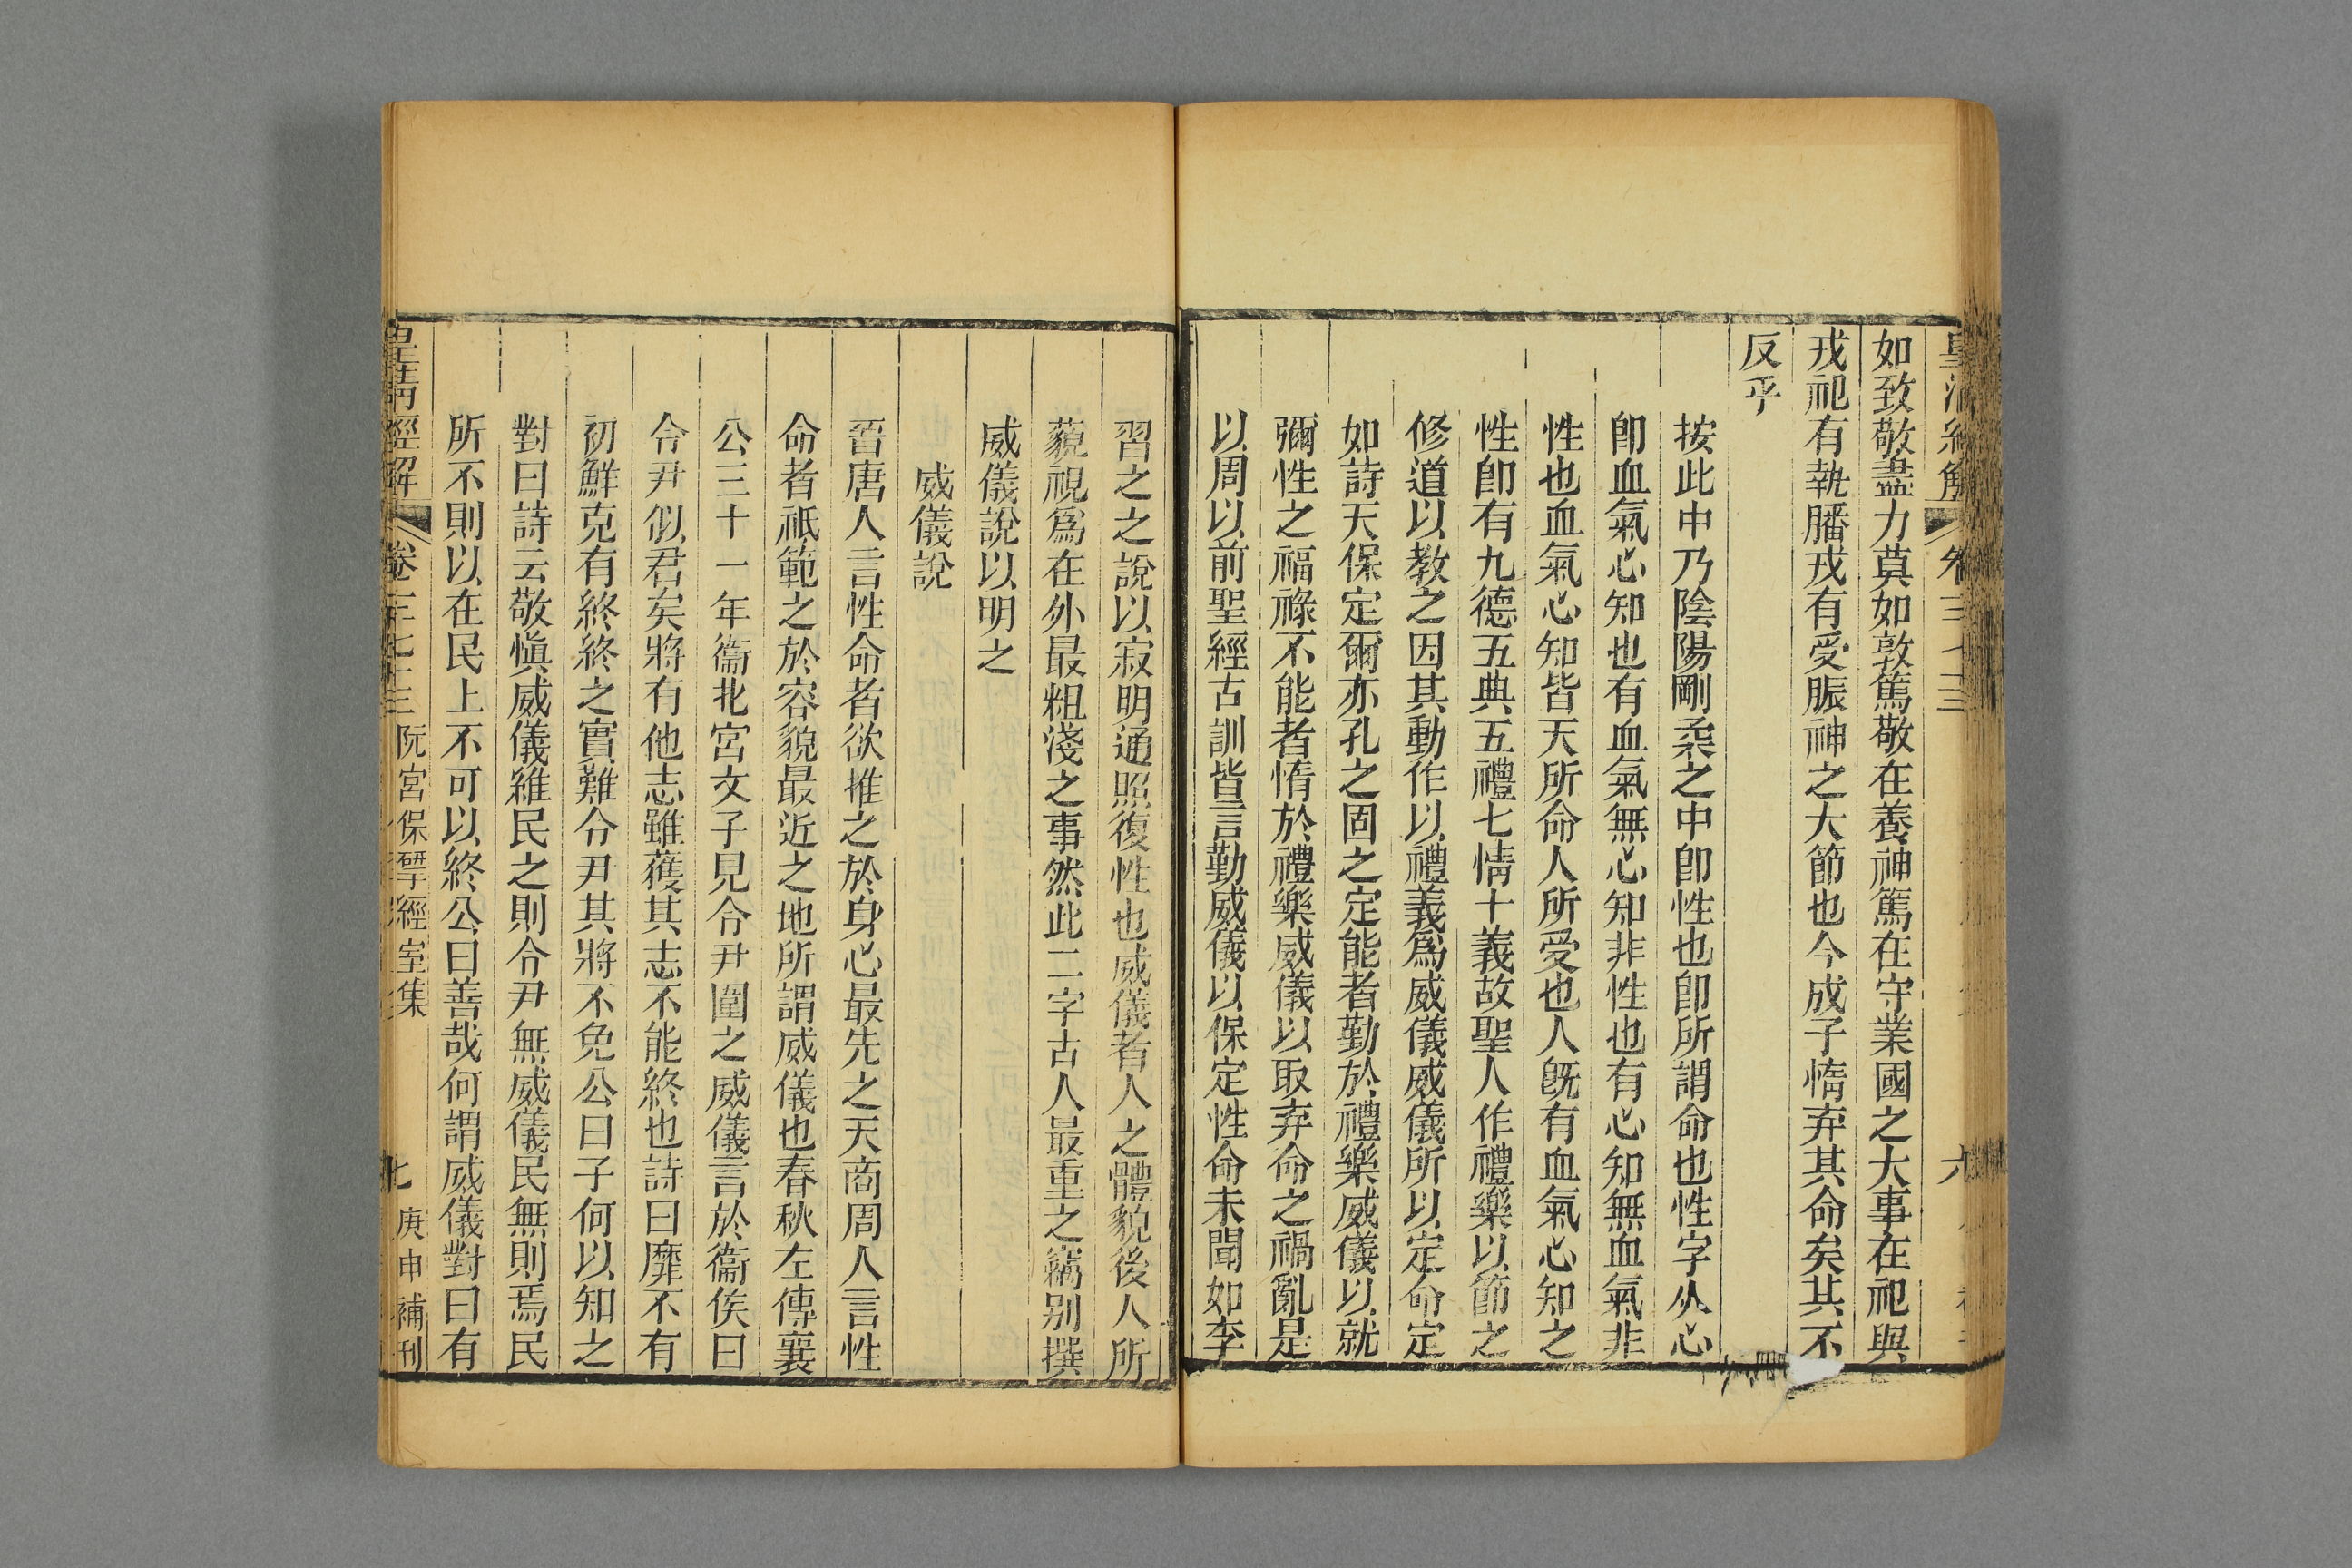 如致敬盡力莫如敦篤敬在養神篤在守業國之大事在祀與
戎祀有執膰戎有受脤神之大節也今成子惰弃其命矣其不
反乎
按此中乃陰陽剛柔之中卽性也卽所謂命也性字从心
卽血氣心知也有血氣無心知非性也有心知無血氣非
性也血氣心知皆天所命人所受也人旣有血氣心知之
性卽有九德五典五禮七情十義故聖人作禮樂以節之
修道以敎之因其動作以禮義爲威儀威儀所以定命定
如詩天保定爾亦孔之固之定能者勤於禮樂威儀以就
彌性之福祿不能者惰於禮樂威儀以取弃命之禍亂是
以周以前聖經古訓皆言勤威儀以保定性命未聞如李
習之之說以寂明通照復性也威儀者人之體貌後人所
藐視爲在外最粗淺之事然此二字古人最重之竊别撰
威儀說以明之
威儀說
晉唐人言性命者欲推之於身心最先之天商周人言性
命者祇範之於容貌最近之地所謂威儀也春秋左傳襄
公三十一年衞北宮文子見令尹圍之威儀言於衞侯曰
令尹似君矣將有他志雖獲其志不能終也詩曰靡不有
初鮮克有終終之實難令尹其將不免公曰子何以知之
對曰詩云敬愼威儀維民之則令尹無威儀民無則焉民
所不則以在民上不可以終公曰善哉何謂威儀對曰有
皇淸經解 卷一千七十三 阮宮保揅經室集 七 庚申補刊